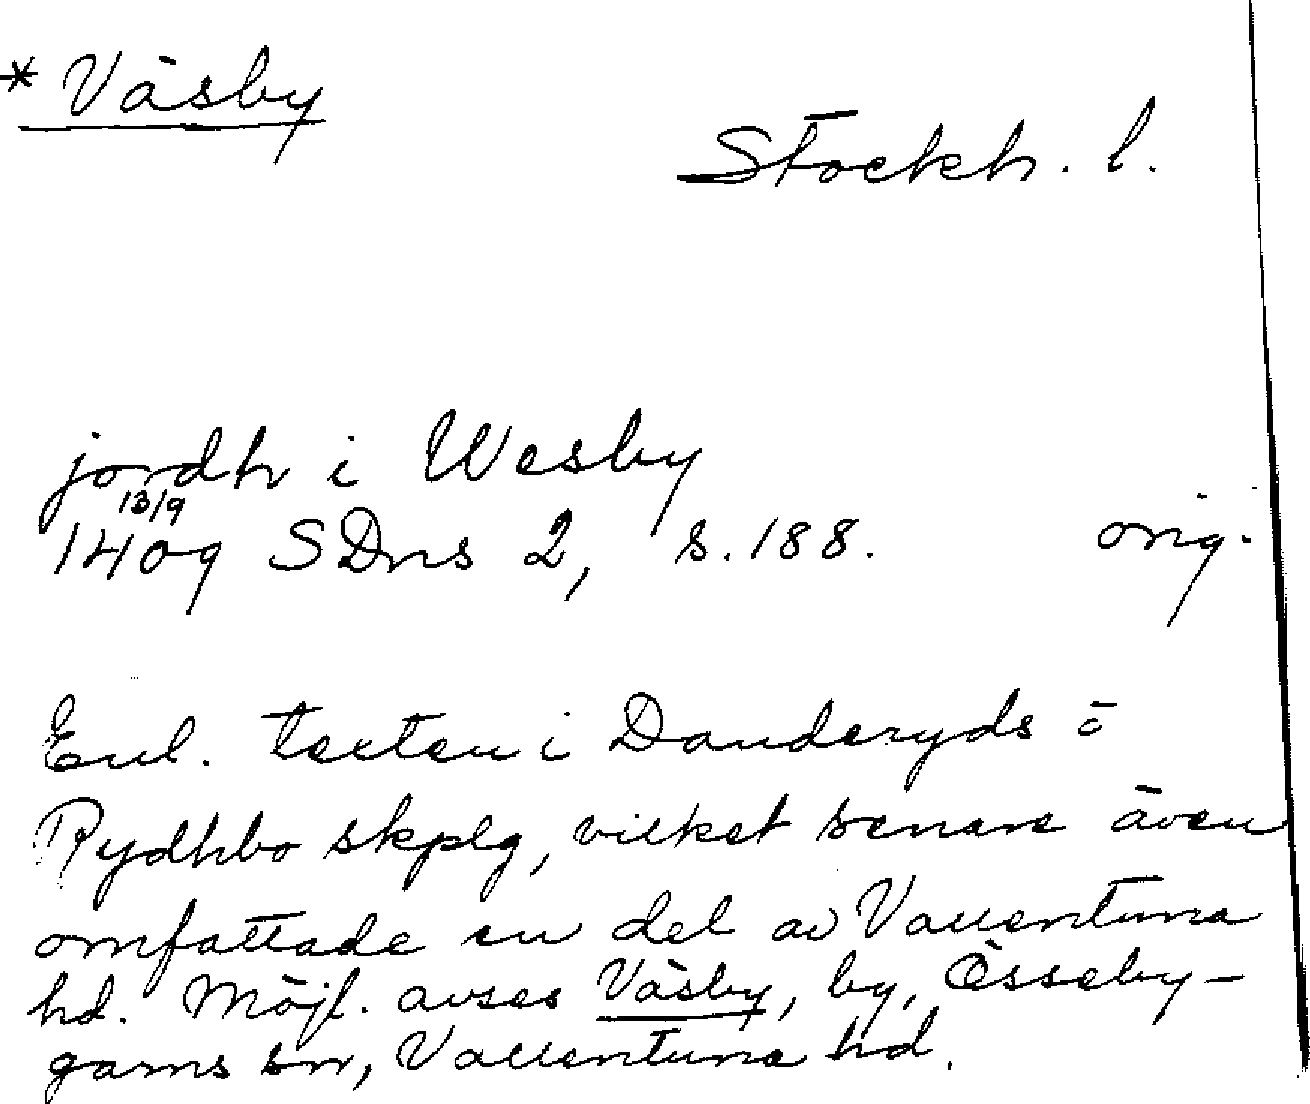 * Väsby
Stockh. l.
jordh i Wesby
13/9
1409 SDns 2, s. 188. orig.
Enl. texten i Danderyds o
Rydhbo skplg, vilket senare även
omfattade en del av Vallentuna
hd. Möjl. avses Väsby, by, Össeby-
garns sn, Vallentuna hd.